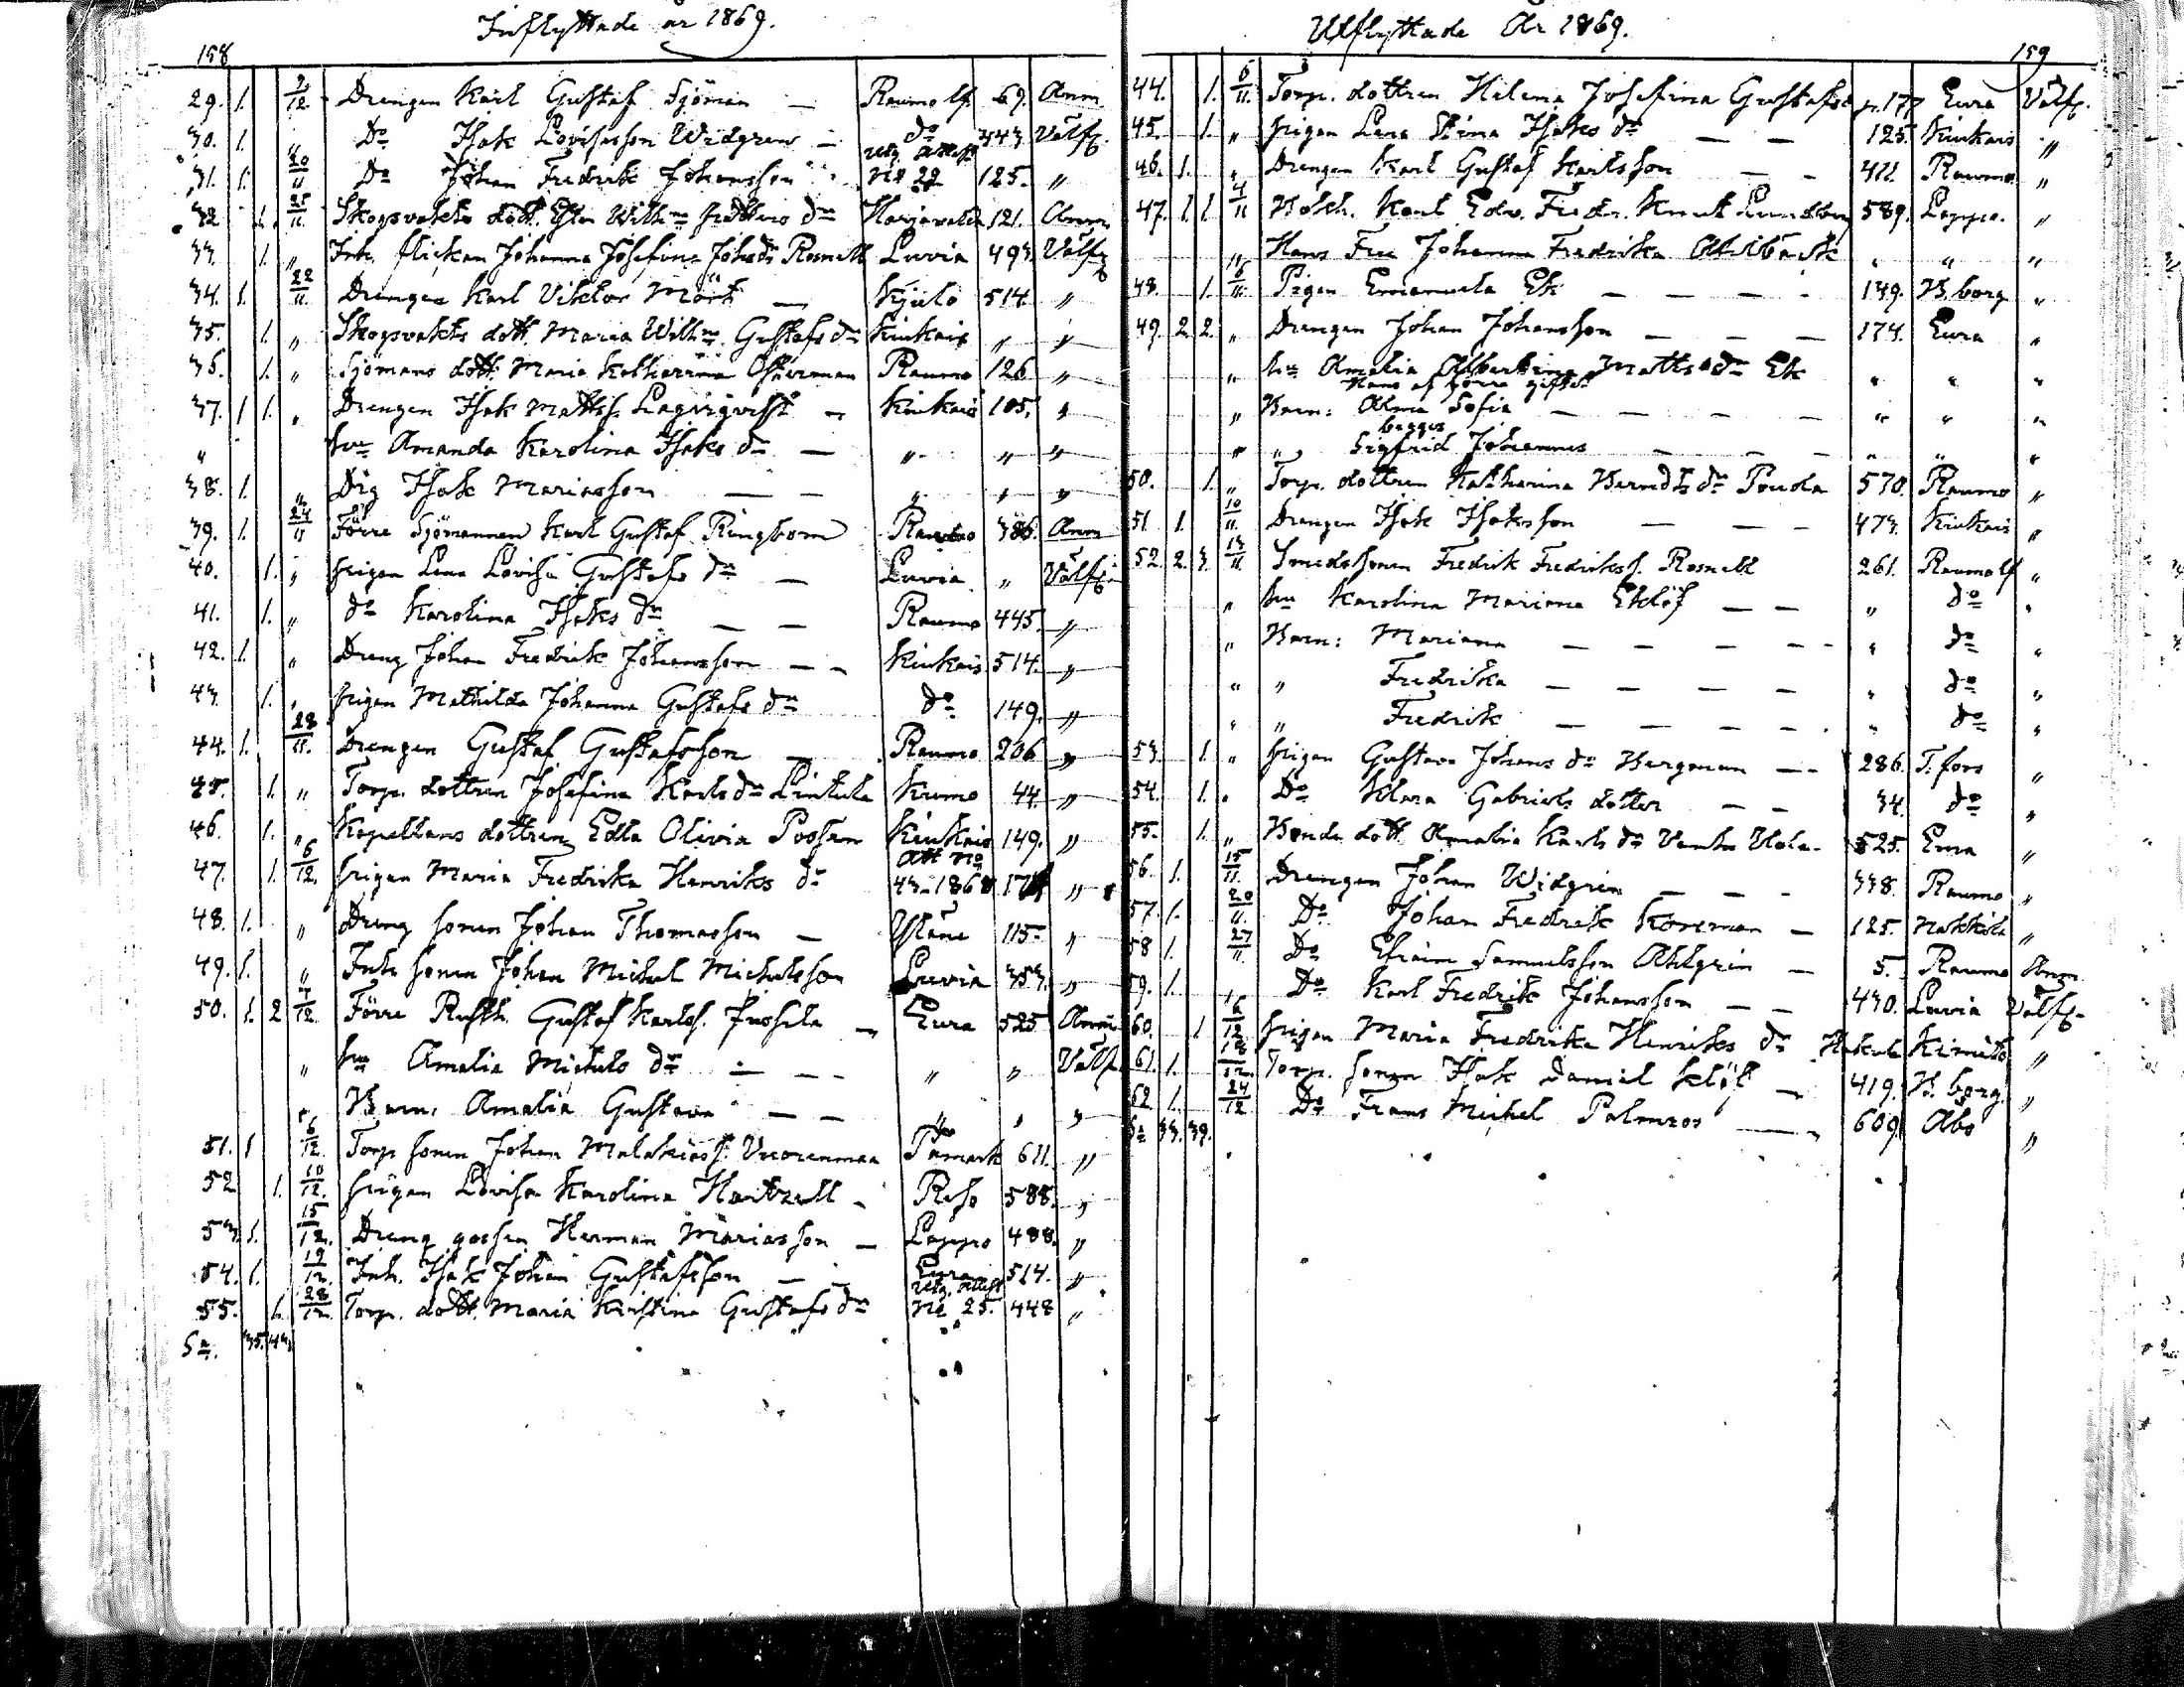 Inflyttade år 1869.
158
29. 1. 2/12. Drengen Karl Gustaf Sjöman — Raumo lf. 69. Anm
30. 1. " Do Isak Lovisasson Widgren — do 343 Välfr.
utg. Attest
31. 1. 20/11 Do Johan Fredrik Johansson " No 29 125. "
32 1. 25/11. Skogsvakts dott. Wilhna dr Harjavalta 121. Anm
33. 1. " Inh. flickan Johanna Josefina Johsdr Rosnell Luvia 493 Välfr
34. 1. 22/11. Drengen Karl Viktor Mört — Kjulo 514 "
35. 1. " Skogsvakts dott. Maria Wilhna Gustafs dr Kiukais " "
36. 1. " Sjömans dott. Maria Katharina Österman Raumo 126 "
37. 1 1. " Drengen Isak Mattss. Lagerqvist — Kiukais 105. "
" hu Amanda Karolina Isaks dr — " " "
38. 1. " Drg Isak Mariasson — — " " "
39. 1. 24/11 Förre Sjömannen Karl Gustaf Ringbom Raumo 386. Anm
40. 1. " Pigan Lena Lovisa Gustafs dr — Luvia " Välfr.
41. 1. " do Karolina Isaks dr — — Raumo 445. "
42. 1. " Dreng Johan Fredrik Johansson — — Kiukais 514. "
43. 1. " Pigan Mathilda Johanna Gustafs dr do 149. "
44. 1. 28/11. Drengen Gustaf Gustafsson — Raumo 206 "
45. 1. " Torp. dottren Josefina Karls dr Lintula Kumo 44. "
46. 1. " Kapellans dottren Edla Olivia Possen Kiukais 149. "
Att No
47. 1. 6/12. Pigan Maria Fredrika Henriks dr 43-1868 "
48. 1. " Dreng sonen Johan Thomasson — Yläne 115. "
49. 1. " Inh sonen Johan Michel Michelsson Luvia 353. "
50. 1. 2 7/12. Förre Rusth. Gustaf Karlss. Jussila — Eura 525 Anm
" hu Amalia Michels dr — — — " " Välf.
" Barn: Amalia Gustava — — " " "
51. 1 6/12. Torp sonen Johan Malakiass. Vuorenmaa Påmark 611. "
52 1. 10/12. Pigan Lovisa Karolina Hartzell — Reso 588. "
53. 1. 15/12. Dreng gossen Herman Mariasson — Lappo 488. "
54. 1. 19/12. Inh. Isak Johan Gustafsson — — Eura 514. "
utg. Attest
55. 1. 28/12. Torp. dott. Maria Kristina Gustafs dr No 25. 448 "
Sa. 35. 43.
Utflyttade År 1869.
159
44. 1. 6/11. Torp. dottren Helena Josefina Gustafsdr 177 Eura Välfr.
45. 1. " Pigan Lena Stina Isaks dr — — 125. Kiukais "
46. 1. " Drengen Karl Gustaf Karlsson — — 411. Raumo "
47. 1. 1. 4/11 Bokh. Karl Edv. Fredr. Knut Lundberg 589. Lappo. "
" Hans Fru Johanna Fredrika Ahlbäck " " "
48. 1. 6/11. Pigan Emanuela Ek — — — — 149. B.borg "
49. 2. 2. " Drengen Johan Johansson — — — 174. Eura "
" hu Amalia Albertina Matts dr Ek " " "
Hans af förra giftet
" Barn: Alma Sofia — — — — " " "
begges
" " Sigfrid Johannes — — — " " "
50. 1. " Torp. dottren Katharina Berndts dr Pouda 570. Raumo "
51. 1. 10/11. Drengen Isak Isaksson — — — 473. Kiukais "
52. 2. 3. 13/11. Smedssonen Fredrik Fredrikss. Rosnell 261. Raumo lf "
" hu Karolina Mariana Eklöf — — " do "
" Barn: Mariana — — — — — " do "
" " Fredrika — — — — — " do "
" " Fredrik — — — — — " do "
53. 1. " Pigan Gustava Johans dr Bergman — — 286. T.fors "
54. 1. " Do Klara Gabriels dotter — — 34. do "
55. 1. " Bonde dott. Amalia Karls dr 525. Eura "
56. 1. 15/11. Drengen Johan Widgren — — — 338. Raumo "
57. 1. 20/11. Do Johan Fredrik Koreman — 125. Nakkila "
58 1. 27/11. Do Efraim Samuelsson Ahlgren — 5. Raumo Anm.
59. 1. Do Karl Fredrik Johansson — — 430. Luvia Välfr.
60. 1 6/12 Pigan Maria Fredrika Henriks dr Kimito "
61. 1. 18/12. Torp. sonen Isak Daniel Klöf — 419. B.borg. "
62 1. 24/12 Do Frans Michel Palmroos — — 609. Åbo "
Sa 33. 39.